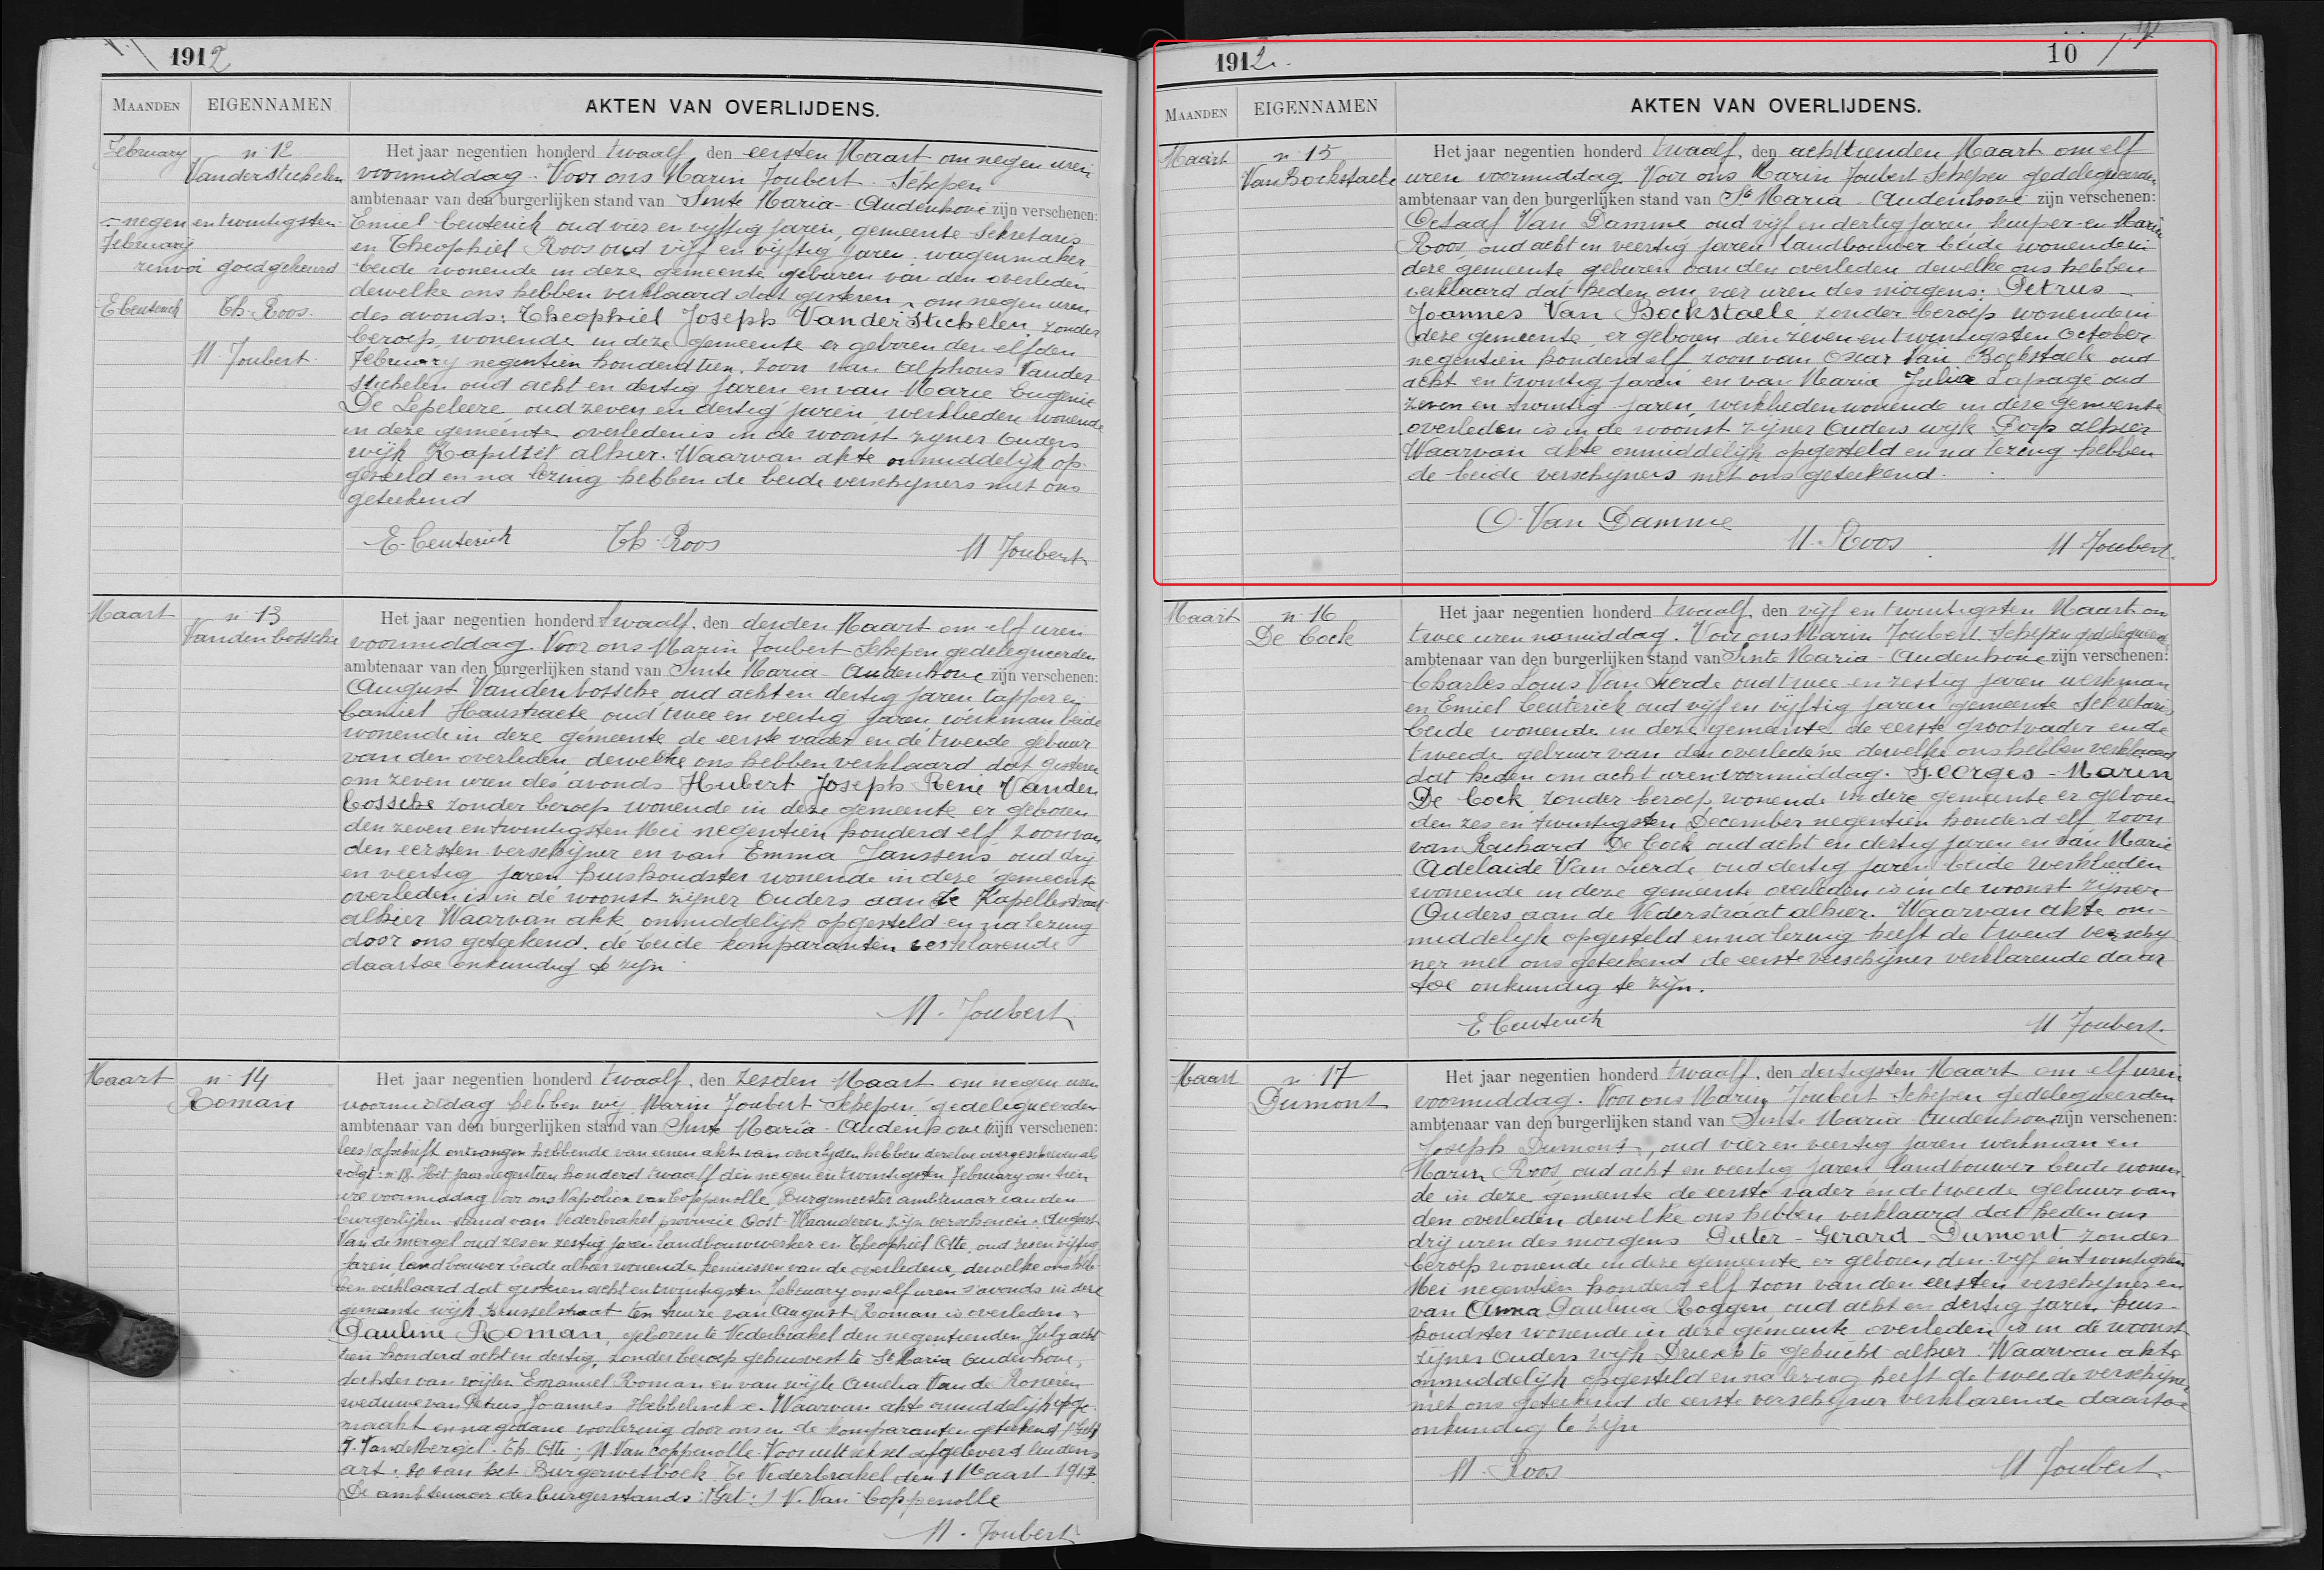 1912
MAANDEN EIGENNAMEN AKTEN VAN OVERLIJDENS.
February
n 12
Vanderstichelen
negen en twintigsten
February
renvoi goedgekeurd
E Ceuterick Th. Roos.
M Joubert
Het jaar negentien honderd twaalf, den eersten Maart om negen uren
voormiddag. Voor ons Marin Joubert Schepen
ambtenaar van den burgerlijken stand van Sinte Maria-Audenhove zijn verschenen:
Emiel Ceuterick oud vier en vijftig jaren, gemeente Sekretaris
en Theophiel Roos oud vijf en vijftig jaren wagenmaker
beide wonende in deze gemeente geburen van den overleden
dewelke ons hebben verklaard dat gisteren om negen uren
des avonds: Theophiel Joseph Vander Stichelen zonder
beroep, wonende in deze gemeente er geboren den elfden
February negentien honderd tien. zoon van Alphons Vander
Stichelen oud acht en dertig jaren en van Marie Eugenie
De Lepeleere oud zeven en dertig jaren werklieden wonende
in deze gemeente overleden is in de woonst zijner Ouders
wijk Kapittel alhier. Waarvan akte onmiddelijk op-
gesteld en na lezing hebben de beide verschijners met ons
geteekend
E. Ceuterick Th. Roos M Joubert
Maart
n 13
Vandenbossche
Het jaar negentien honderd twaalf, den derden Maart om elf uren
voormiddag. Voor ons Marin Joubert Schepen gedelegueerden
ambtenaar van den burgerlijken stand van Sinte Maria-Audenhove zijn verschenen:
August Vandenbossche oud acht en dertig jaren tapper en
Camiel Haustraete oud twee en veertig jaren werkman beide
wonende in deze gemeente de eerste vader en de tweede gebuur
van den overleden dewelke ons hebben verklaard dat gisteren
om zeven uren des avonds Hubert Joseph René Vanden
bossche zonder beroep wonende in deze gemeente er geboren
den zeven en twintigsten Mei negentien honderd elf zoon van
den eersten verschijner en van Emma Janssens oud drij
en veertig jaren huishoudster wonende in deze gemeente
overleden is in de woonst zijner Ouders aan de Kapellestraat
alhier Waarvan akte onmiddelijk opgesteld en na lezing
door ons geteekend. de beide komparanten verklarende
daartoe onkundig te zijn
M. Joubert
Maart
n 14
Roman
Het jaar negentien honderd twaalf, den zesden Maart om negen uren
voormiddag hebben wij Marin Joubert Schepen gedelegueerden
ambtenaar van den burgerlijken stand van Sinte Maria-Audenhove zijn verschenen:
een afschrift ontvangen hebbende van eenen akte van overlijden hebben dezelve overgeschreven als
volgt: n 18. Het jaar negentien honderd twaalf den negen en twintigsten February om tien
ure voormiddag voor ons Napoleon van Coppenolle, Burgemeester ambtenaar van den
burgerlijken stand van Nederbrakel provincie Oost-Vlaanderen zijn verschenen: August
Van de Mergel oud zes en zestig jaren landbouwwerker en Theophiel Otte, oud zes en vijftig
jaren, landbouwer beide alhier wonende, kennissen van de overledene, dewelke ons heb-
ben verklaard dat gisteren acht en twintigsten February om elf uren s'avonds in deze
gemeente wijk Brusselstraat ten huize van August Roman is overleden
Pauline Roman, geboren te Nederbrakel den negentienden July acht
tien honderd acht en dertig, zonder beroep gehuisvest te Ste Maria Audenhove,
dochter van wijlen Emanuel Roman en van wijle Amelia Van de Ronseren
weduwe van Petrus Joannes Hebbelinck. Waarvan akte onmiddelijk opge-
maakt en na gedane voorlezing door ons en de komparanten geteekend (Get)
A. Van de Mergel. Th. Otte; N Van Coppenolle. Voor uittreksel afgeleverd luidens
art. 80 van het Burgerwetboek. Te Nederbrakel den 1 Maart 1912.
De ambtenaar des burgerstands: (Get:) N. Van Coppenolle
M. Joubert
1912. 10
MAANDEN EIGENNAMEN AKTEN VAN OVERLIJDENS.
Maart
n 15
Van Bockstaele
Het jaar negentien honderd twaalf, den achttienden Maart om elf
uren voormiddag Voor ons Marin Joubert Schepen gedelegueerden
ambtenaar van den burgerlijken stand van Ste Maria-Audenhove zijn verschenen:
Octaaf Van Damme oud vijf en dertig jaren, kuiper en Marin
Roos, oud acht en veertig jaren landbouwer beide wonende in
deze gemeente geburen van den overleden dewelke ons hebben
verklaard dat heden om vier uren des morgens: Petrus
Joannes Van Bockstaele zonder beroep wonende in
deze gemeente er geboren den zeven en twintigsten October
negentien honderd elf zoon van Oscar Van Bockstaele oud
acht en twintig jaren en van Maria Julia Lapage oud
zeven en twintig jaren, werklieden wonende in deze gemeente
overleden is in de woonst zijner Ouders wijk Dorp alhier
Waarvan akte onmiddelijk opgesteld en na lezing hebben
de beide verschijners met ons geteekend.
O. Van Damme M. Roos M Joubert.
Maart
n 16
De Cock
Het jaar negentien honderd twaalf, den vijf en twintigsten Maart om
twee uren namiddag. Voor ons Marin Joubert Schepen gedelegueerden
ambtenaar van den burgerlijken stand van Sinte Maria-Audenhove zijn verschenen:
Charles Louis Van Lierde oud twee en zestig jaren werkman
en Emiel Ceuterick oud vijf en vijftig jaren gemeente Sekretaris
beide wonende in deze gemeente de eerste grootvader en de
tweede gebuur van den overledene dewelke ons hebben verklaard
dat heden om acht uren voormiddag. Georges-Marin
De Cock zonder beroep wonende in deze gemeente er geboren
den zes en twintigsten December negentien honderd elf zoon
van Richard De Cock oud acht en dertig jaren en van Marie
Adelaide Van Lierde oud dertig jaren beide werklieden
wonende in deze gemeente overleden is in de woonst zijner
Ouders aan de Nederstraat alhier. Waarvan akte on-
middelijk opgesteld en na lezing heeft de tweed verschij
ner met ons geteekend de eerste verschijner verklarende daar
toe onkundig te zijn.
E Ceuterick M Joubert.
Maart
n 17
Dumont
Het jaar negentien honderd twaalf, den dertigsten Maart om elf uren
voormiddag. Voor ons Marin Joubert Schepen gedelegueerden
ambtenaar van den burgerlijken stand van Sinte Maria Audenhove zijn verschenen:
Joseph Dumont, oud vier en veertig jaren werkman en
Marin Roos oud acht en veertig jaren landbouwer beide wonen-
de in deze gemeente de eerste vader en de tweede gebuur van
den overleden dewelke ons hebben verklaard dat heden om
drij uren des morgens Pieter-Gerard Dumont zonder
beroep wonende in deze gemeente er geboren, den vijf en twintigsten
Mei negentien honderd elf zoon van den eersten verschijner en
van Anna Paulina Roggen, oud acht en dertig jaren huis-
houdster wonende in deze gemeente overleden is in de woonst
zijner Ouders wijk Driesch te gehucht alhier. Waarvan akte
onmiddelijk opgesteld en na lezing heeft de tweede verschijner
met ons geteekend de eerste verschijner verklarende daartoe
onkundig te zijn
M. Roos M Joubert